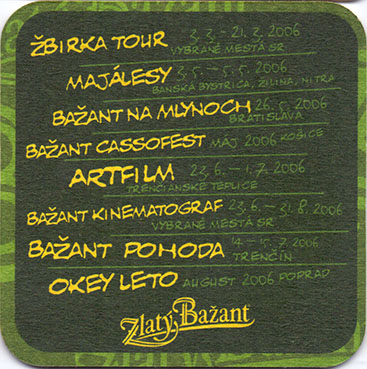 ŽBIRKA TOUR 2.2. - 21.3. 2006
VYBRANÉ MESTÁ SR
MAJÁLESY 2.5. - 5.5. 2006
BANSKÁ BYSTRICA, ŽILINA, NITRA
BAŽANT NA MLYNOCH 26.5. 2006
BRATISLAVA
BAŽANT CASSOFEST MÁJ 2006 KOŠICE
ARTFILM 23.6. - 1.7. 2006
TRENČIANSKE TEPLICE
BAŽANT KINEMATOGRAF 23.6. - 31.8. 2006
VYBRANÉ MESTÁ SR
BAŽANT POHODA 14.- 15.7. 2006
TRENČÍN
OKEY LETO AUGUST 2006 POPRAD
Zlatý Bažant